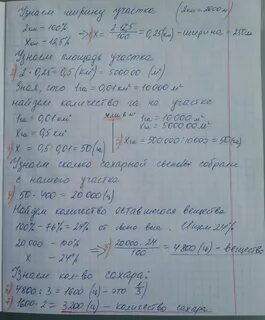 Узнаем ширину участка (2км=2000м)
2км - 100%
Xкм - 12,5%
1) X = 2·12,5/100 = 0,25 (км) - ширина = 250м
Узнаем площадь участка
2) 2 · 0,25 = 0,5 (км²) = 500000 (м²)
Зная, что 1га = 0,01 км² = 10000 м²
найдем количество га на участке
1га = 0,01 км² или 1га = 10000 м²
Xга = 0,5 км² Xга = 500000 м²
3) X = 0,5 : 0,01 = 50 (га) 3) X = 500000 : 10000 = 50 (га)
Узнаем сколько сахарной свеклы собрано
с нашего участка
4) 50 · 400 = 20000 (ц)
Найдем количество оставшегося вещества
100% - 76% = 24% от
20000 - 100%
X - 24%
5) 20000 · 24/100 = 4800 (ц) - вещество
Узнаем кол-во сахара:
6) 4800 : 3 = 1600 (ц) - это 1/3
7) 1600 · 2 = 3200 (ц) - количество сахара